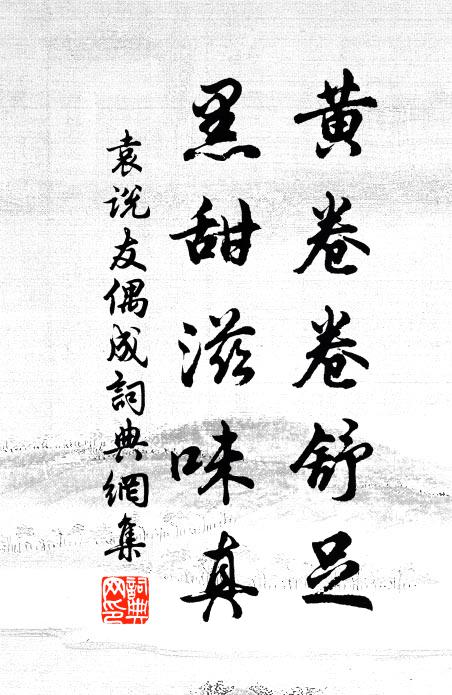 黄卷卷舒足
黑甜滋味真
袁说友偶成詞典網集
詞典网印